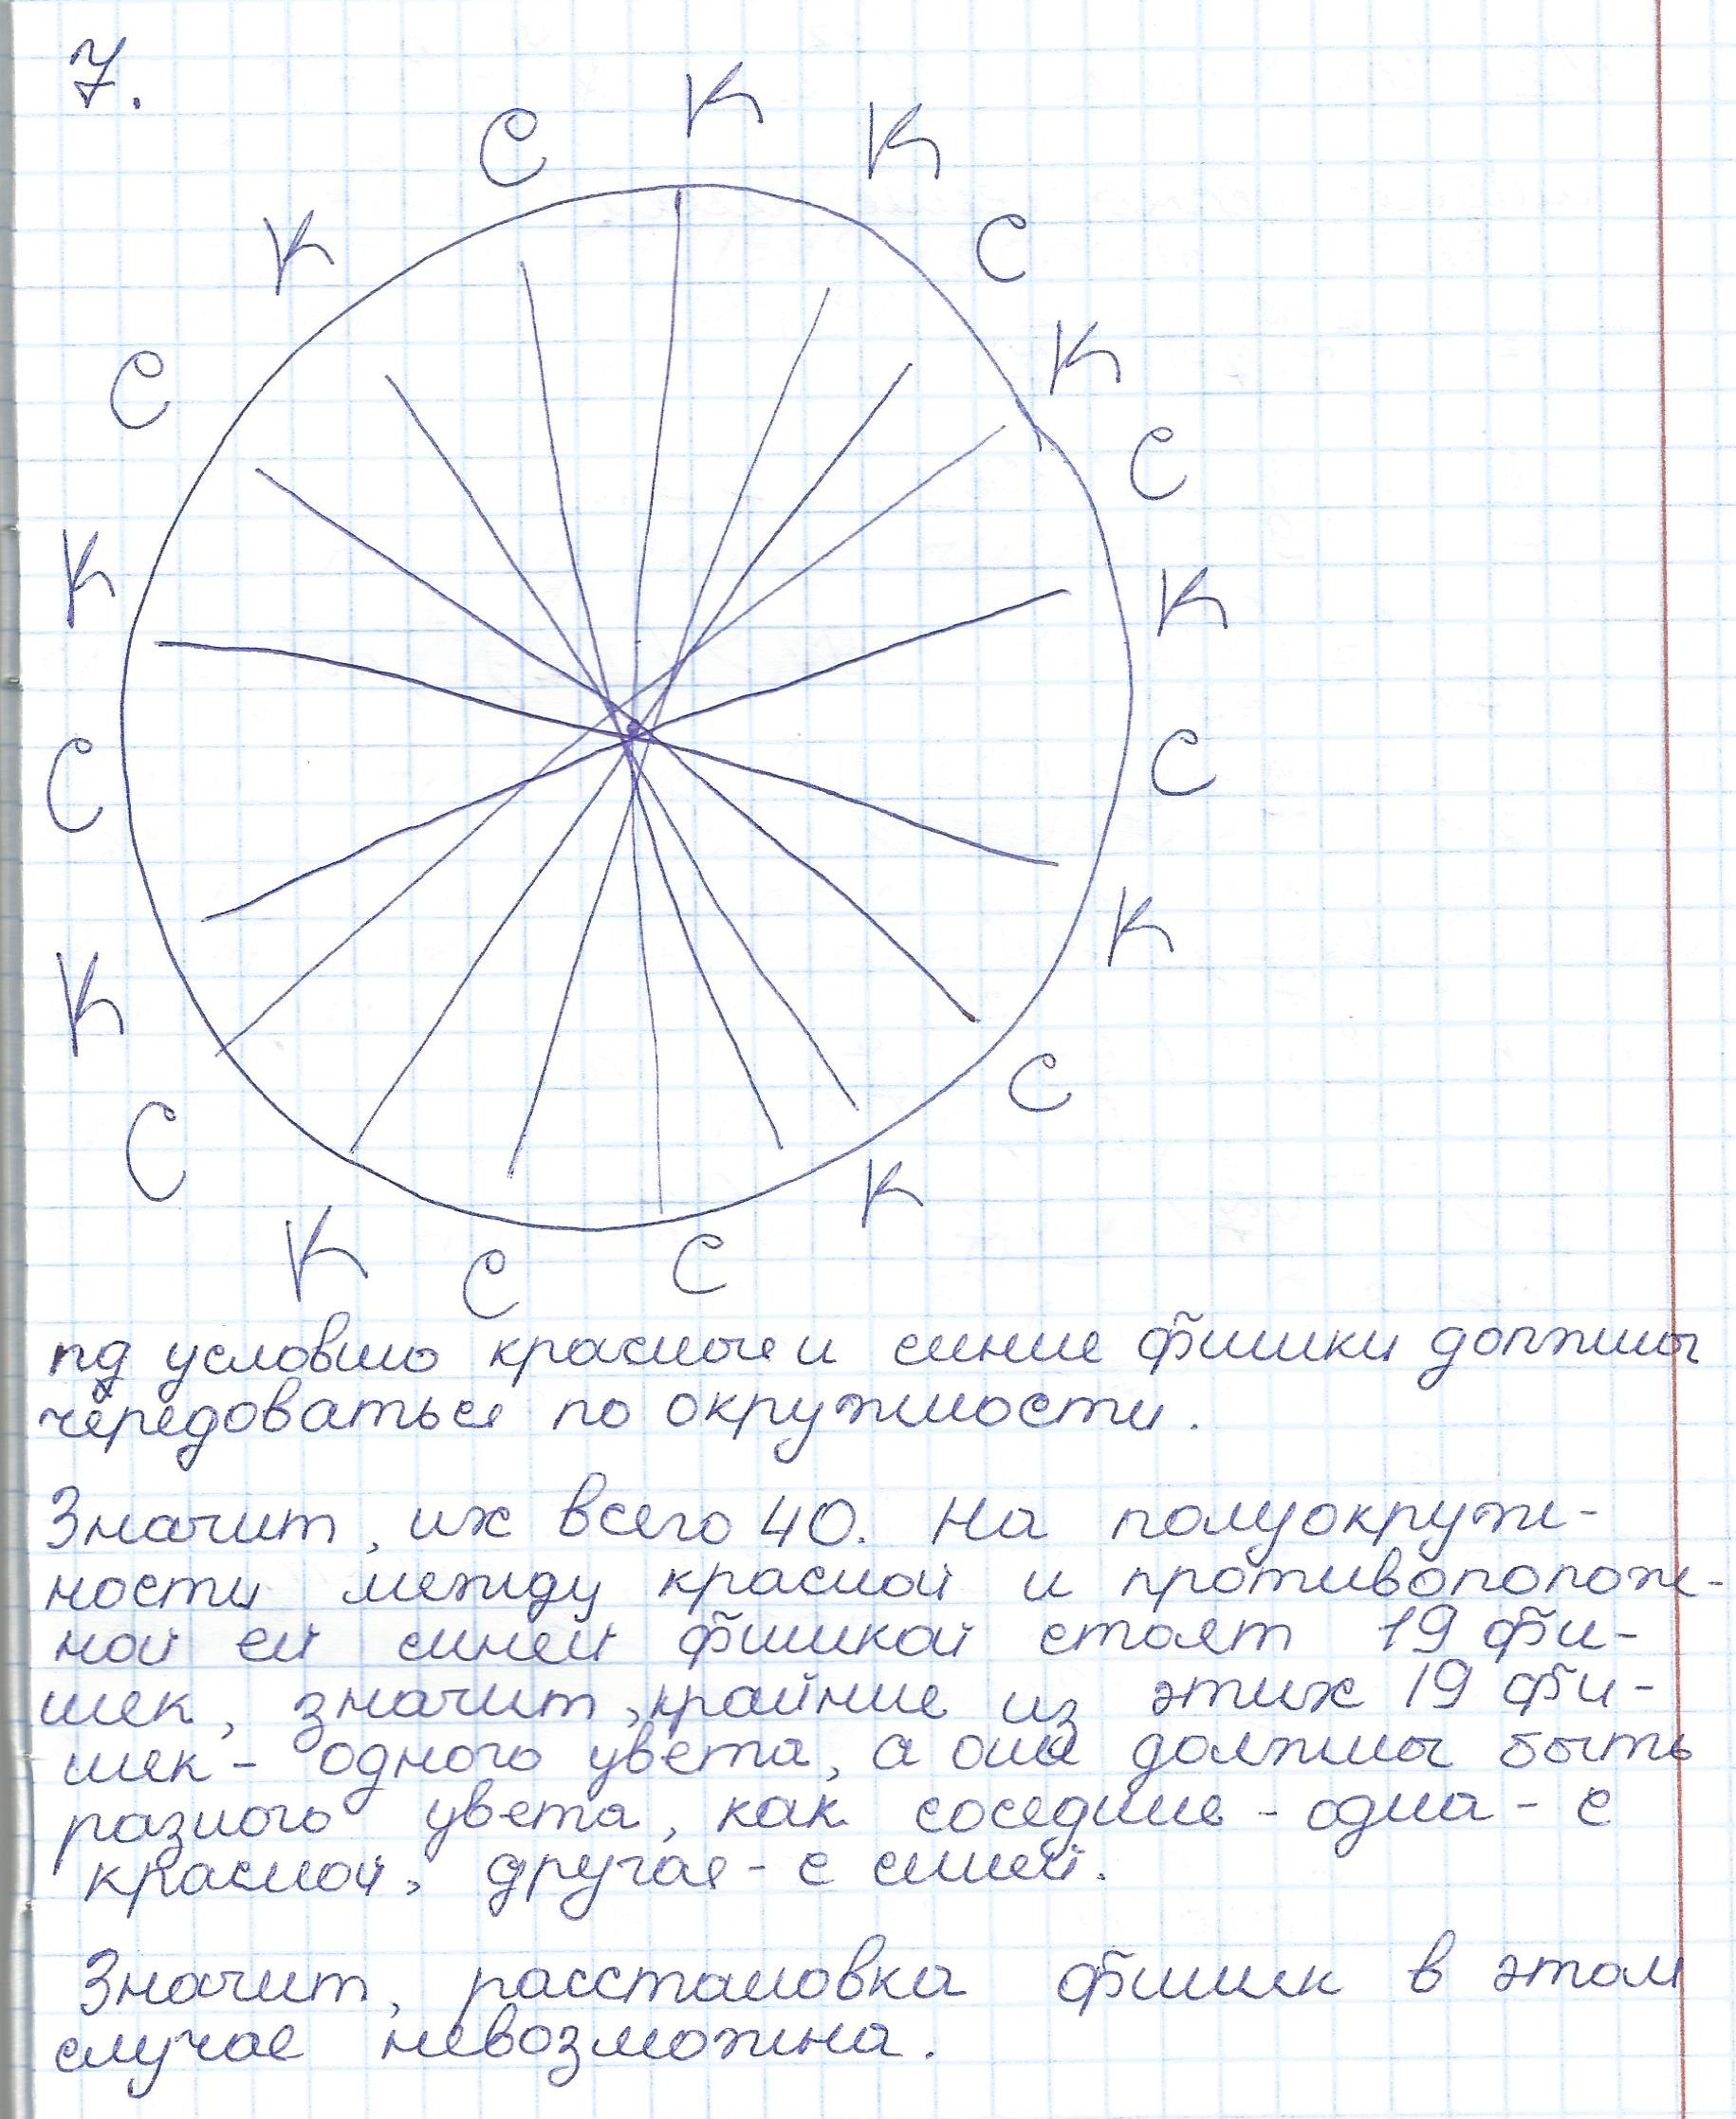 7.
С К К
К С
С К
К С
С К
К С
С К
К С С К С
пд условию красные и синие фишки должны
чередоваться по окружности.
Значит, их всего 40. На полуокруж-
ности между красной и противополож-
ной ей синей фишкой стоят 19 фи-
шек, значит, крайние из этих 19 фи-
шек - одного цвета, а они должны быть
разного цвета, как соседние - одна - с
красной, другая - с синей.
Значит, расстановка фишек в этом
случае невозможна.